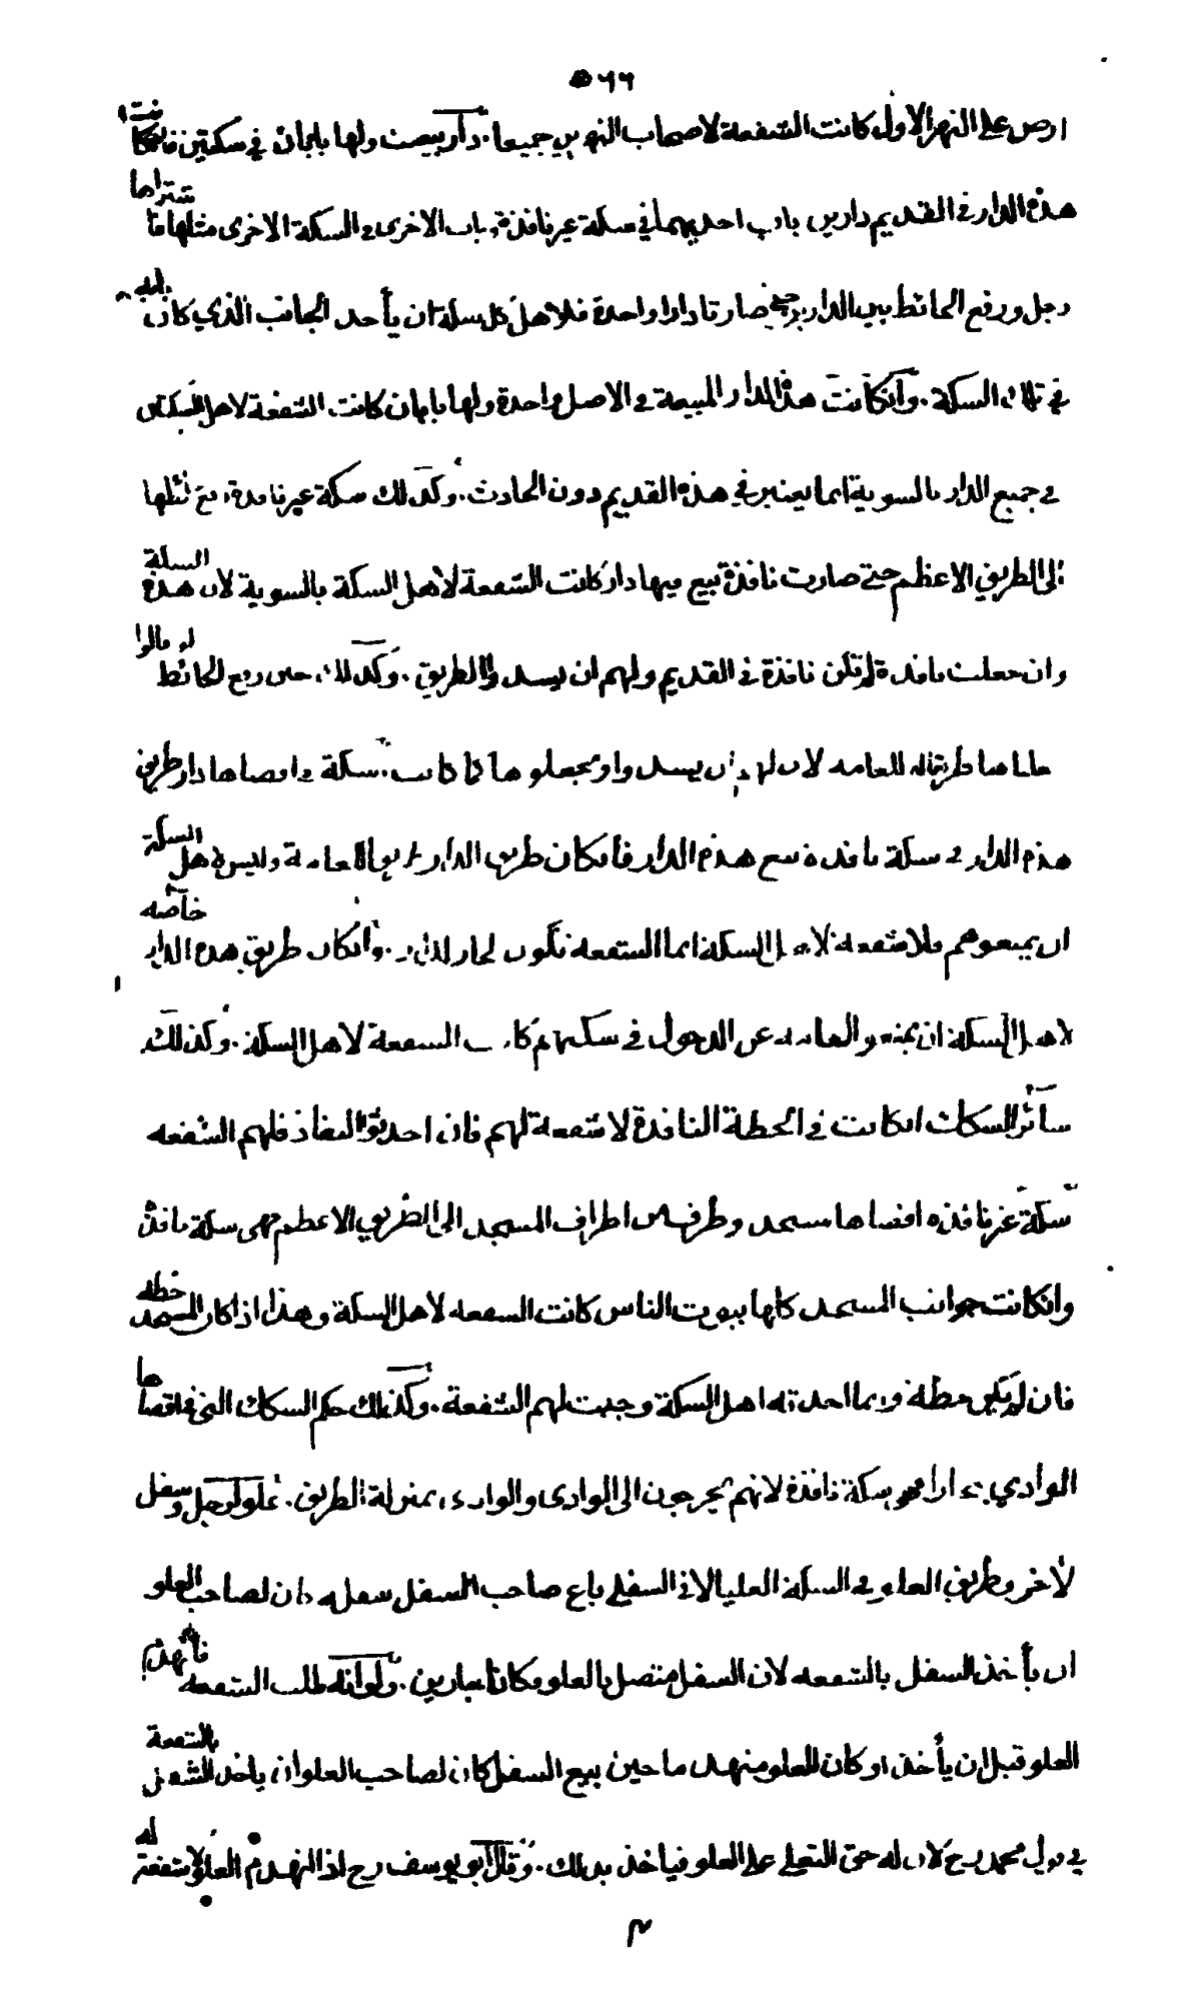 ٥٦٦
ارض على النهر الاول كانت الشفعة لاصحاب النهرين جميعا . دار بيعت ولها بابان في سكتين فان كانت
هذه الدار في القديم دارين باب احديهما في سكة غير نافذة وباب الاخرى في السكة الاخرى مثلها فاشتراها
رجل ورفع الحائط بين الدارين حتى صارتا دارا واحدة فلاهل كل سكة ان يأخذ الجانب الذي كان بابه
في تلك السكة . وان كانت هذه الدار المبيعة في الاصل واحدة ولها بابان كانت الشفعة لاهل السكتين
في جميع الدار بالسوية انما يعتبر في هذه القديم دون الحادث . وكذلك سكة غير نافذة رفع حائطها
الى الطريق الاعظم حتى صارت نافذة بيع فيها دار كانت الشفعة لاهل السكة بالسوية لان هذه السكة
وان جعلت نافذة لم تكن نافذة في القديم ولهم ان يسدوا الطريق . وكذلك حين رفع الحائط لو قالوا
جعلناها طريقا للعامة لان لهم ان يسدوا ويجعلوها كما كانت . سكة في اقصاها دار طريق
هذه الدار في سكة نافذة بيع هذه الدار فان كان طريق الدار طريقا للعامة وليس لاهل السكة
ان يمنعوهم فلا شفعة لاهل السكة انما الشفعة تكون لجار الدار . وان كان طريق هذه الدار خاصة
لاهل السكة ان يمنعوا العامة عن الدخول في سكتهم كانت الشفعة لاهل السكة . وكذلك
سائر السكات ان كانت في الخطة النافذة لا شفعة لهم فان احدثوا النفاذ فلهم الشفعه
سكة غير نافذه اقصاها مسجد وطرف من اطراف المسجد الى الطريق الاعظم فهى سكة نافذة
وان كانت جوانب المسجد كلها بيوت الناس كانت الشفعه لاهل السكة وهذا اذا كان المسجد خطه
فان لم يكن خطة وانما احدثه اهل السكة وجبت لهم الشفعة . وكذلك حكم السكك التي في اقصاها
الوادي بخارا فهو سكة نافذة لانهم يخرجون الى الوادى والوادى بمنزلة الطريق . علو لرجل وسفل
لاخر وطريق العلو في السكة العليا لا في السفلى باع صاحب السفل سفله كان لصاحب العلو
ان يأخذ السفل بالشفعه لان السفل متصل بالعلو وكانا جارين . ولو انه طلب الشفعه فانهدم
العلو قبل ان يأخذ او كان العلو منهدما حين بيع السفل كان لصاحب العلو ان ياخذ السفل بالشفعة
في قول محمد رح لان له حق التعلي على العلو فياخذ بذلك . وقال ابو يوسف رح اذا انهدم العلو لا شفعة له